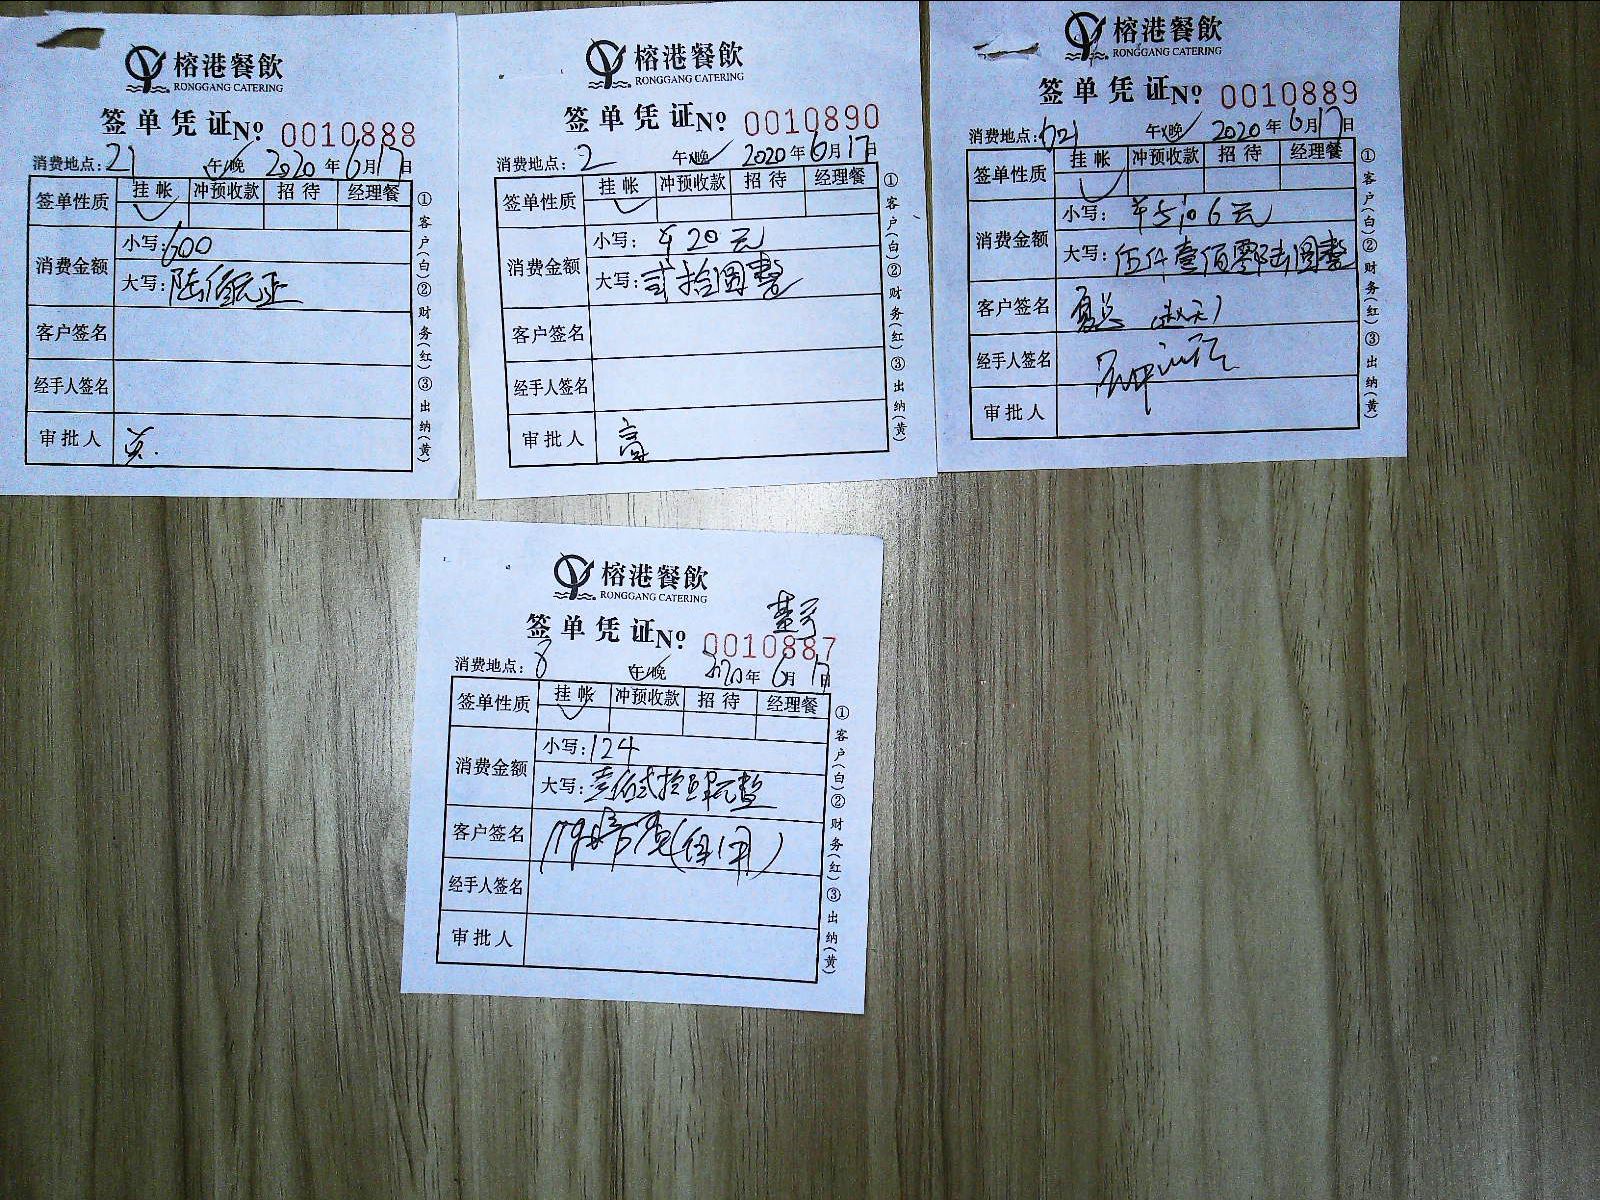 榕港餐飲
RONGGANG CATERING
签单凭证 No 0010888
消费地点：21 午/晚 2020年6月17日
签单性质 挂帐 冲预收款 招待 经理餐
消费金额
小写：600
大写：陆佰元正
客户签名
经手人签名
审批人
①客户(白)②财务(红)③出纳(黄)
榕港餐飲
RONGGANG CATERING
签单凭证 No 0010890
消费地点：2 午/晚 2020年6月17日
签单性质 挂帐 冲预收款 招待 经理餐
消费金额
小写：¥20元
大写：贰拾圆整
客户签名
经手人签名
审批人 高
①客户(白)②财务(红)③出纳(黄)
榕港餐飲
RONGGANG CATERING
签单凭证 No 0010889
消费地点：621 午/晚 2020年6月17日
签单性质 挂帐 冲预收款 招待 经理餐
消费金额
小写：¥5106元
大写：伍仟壹佰零陆圆整
客户签名 夏总
经手人签名
审批人
①客户(白)②财务(红)③出纳(黄)
榕港餐飲
RONGGANG CATERING
签单凭证 No 0010887
消费地点：8 午/晚 2020年6月17日
签单性质 挂帐 冲预收款 招待 经理餐
消费金额
小写：124
大写：壹佰贰拾肆元整
客户签名
经手人签名
审批人
①客户(白)②财务(红)③出纳(黄)